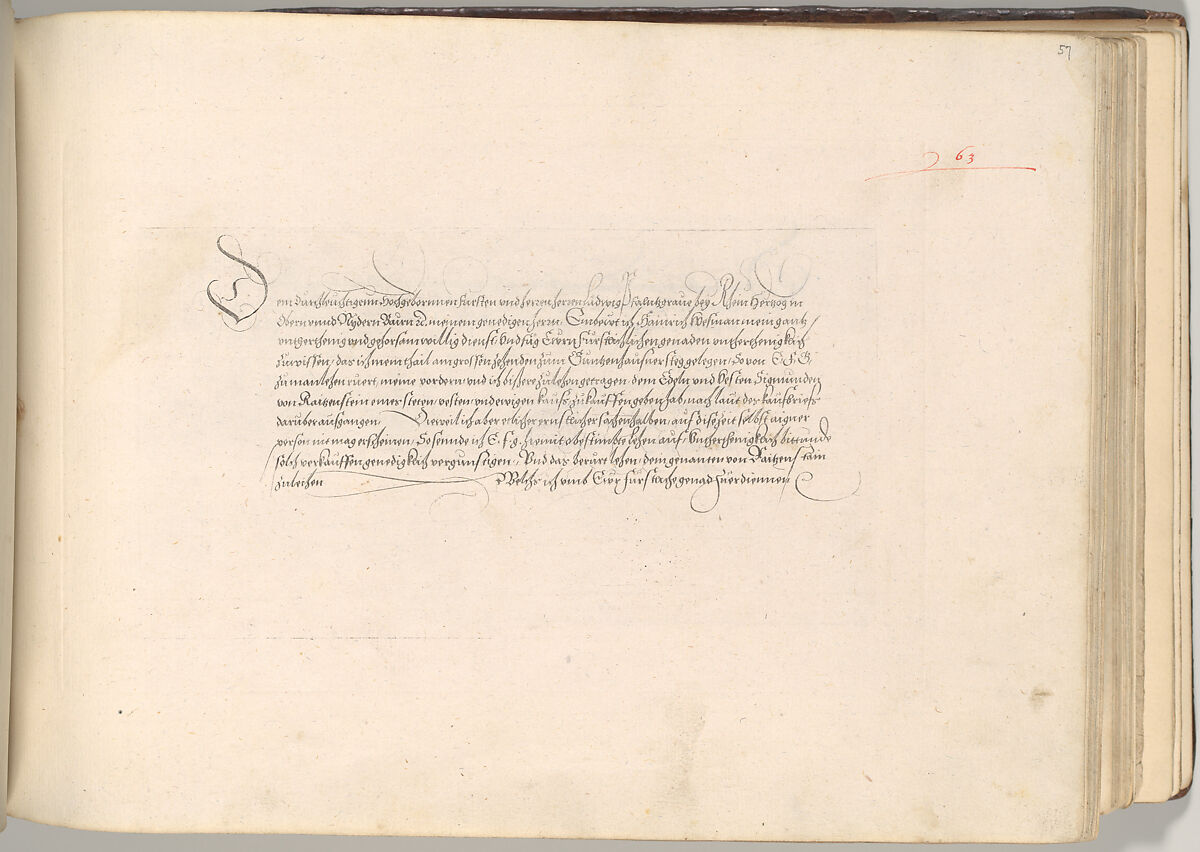 57
63
Dem durchleuchtigenn Hochgebornnen fursten und herren herren Ludwig Pfalntzgraue bey Rhein Hertzog in
Obern unnd Nydern Bairn ec. meinem genedigen herrn. Embeut ich Hainrich mein gantz
unthertheng und gehorsam willig dienst. Und fug Ewrn Furstlichlichen genaden unthertheniglich
zuwissen, das ich mein thail am grossen zehenden zum Guntzenhausner steg gelegen. So von E. F. G.
zu manlehen ruert, meine vordern, und ich bißhere zu lehen getragen, dem Edeln und Vesten Sigmunden
von Raitzenstein einer steten, vesten, und ewigen kauffs zukauffen geben hab, nach laut des kaufbriefs
daruber ausgangen. Dieweil ich aber etlicher ernstlicher sachen halben, auf dise zeit selbst aigner
person nit mag erscheinen, So sennde ich E. f. g. hiemit obestimbte lehen auf, Unthertheniglich bittende
solch verkauffen genediglich vergunstigen, Und das berurt lehen, dem genanten von Raitzenstain
zuleihen Welchs ich umb Ewr furstliche genad fuerdiennen